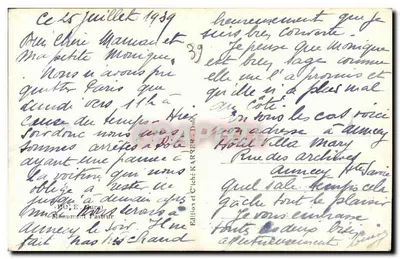 Ce 25 juillet 1939
Bien chère Maman et
Ma petite Monique
Nous n'avons pu
quitter Paris que
lundi vers 11h à
cause du temps. Hier
soir donc nous nous
sommes arrêtés à Dôle
ayant une panne à
la voiture qui nous
oblige à rester ici
jusqu'à demain après
midi. Nous serons à
Annecy le soir. Il ne
fait pas très chaud
39
heureusement que je
suis bien couverte.
Je pense que Monique
est bien sage comme
elle me l'a promis et
qu'elle n'a plus mal
au côté.
En tous les cas voici
mon adresse à Annecy
Hôtel Villa Mary
Rue des archives
Annecy Hte Savoie
Quel sale temps cela
gâche tout le plaisir
Je vous embrasse
toutes deux bien
affectueusement